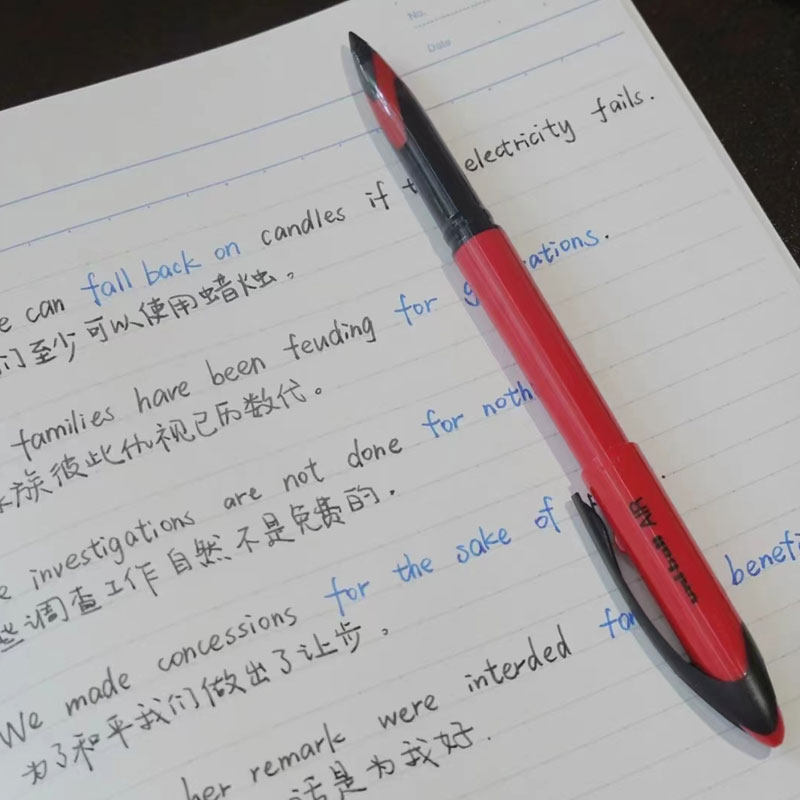 No.
Date
can fall back on candles if electricity fails.
们至少可以使用蜡烛。
families have been feuding for
族彼此仇视已历数代。
investigations are not done for
调查工作自然不是免费的.
We made concessions for the sake of
为了和平我们做出了让步。
her remark were interded
话是为我好.
uni-ball AIR